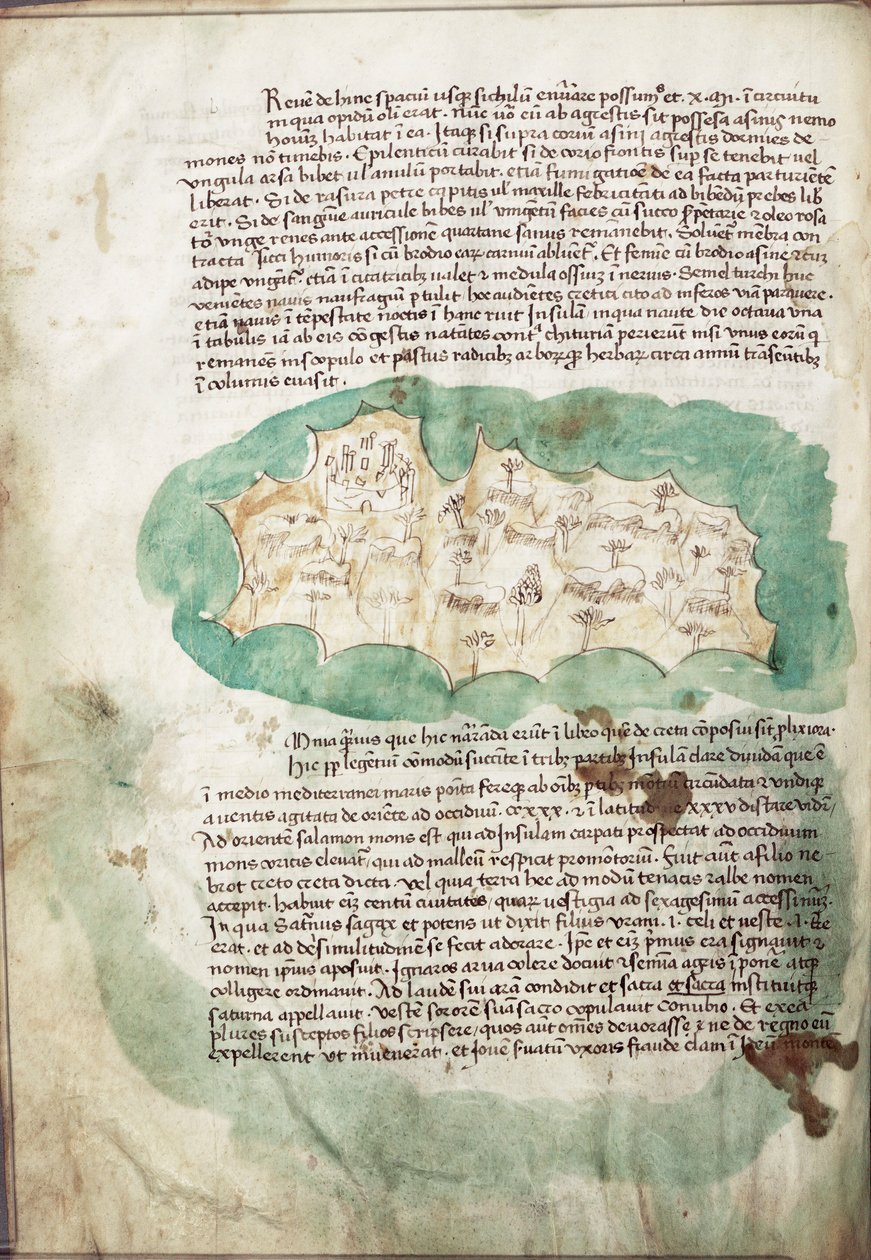 Reuē de hinc spaciū usq; sichilū enūare possum⁹ et. x. m̄. ī circuitu
in qua opidū oli erat. nūc uō eū ab agrestis sit possesa asinis nemo
hoium habitat ī ea. Itaq; si supra coriū asini agrestis dormies de
mones nō timebis. Epilenticū curabit si de corio frontis sup se tenebit uel
vngula arsa bibet ul anulum portabit. etiā fumigatiōe de ea facta parturiētē
liberat. Si de rasura petre capitis ul maxille febricitāti ad bibēdū prebes lib
erit. Si de sanguīe auricule bibes ul vnguētū facies cū succo & oleo rosa
to vnge renes ante accessionē quartane sanus remanebit. Soluent mēbra con
tracta sicci humoris si cū brodio earum carnium abluent. Et femine cū brodio asine et ciuz
adipe vngit. etiā ī cicatricibz ualet & medula ossium ī neruis. Semel turchi huc
venietes nauis naufragiū ptulit. hoc audiētes cretici cito ad inferos viā parauere.
etiā nauis ī tēpestate noctis ī hanc ruit Insulā. in qua naute die octaua una
ī tabulis iā ab eis cōgestis natātes contª chituriam perierunt nisi vnus eorū q
remanens in scopulo et pastus radicibz arborꝝq; herbarꝝ circa annū trāseūtibz
ī columis euasit.
Omnia prius que hic narāda erūt ī libro quē de creta cōposui sūt plixiora.
Hic pp legentiū comodū succinte ī tribz partibz Insulā clare diuidā que ē
ī medio mediterranei maris posita fereq; ab oībz ptibz montiū circūdata & undiq;
a uentis agitata de oriēte ad occiduū. ccxxx. & ī latitudine xxxv distare vidr̄
Ad orientē salamon mons est qui ad Insulam carpati prospectat ad occiduum
mons coricis eleuat, qui ad malleū respicit promōtoriū. Fuit aūt a filio ne
brot creto creta dicta. vel quia terra hec ad modū tenacis & albe nomen
accepit. Habuit eīz centū ciuitates, quaꝝ uestigia ad sexagesimū accessimus.
In qua Saturnus sagax et potens ut dixit filius vrani. i. celi et ueste. i. &e
erat. et ad dei similitudinē se fecit adorare. Ipe et eīz primus era signauit &
nomen ipīus aposuit. Ignaros arua colere docuit & semina agris ī ponē atq;
colligere ordinauit. Ad laudē sui arā condidit et sacra et sacra instituitq;
saturna appellauit. vestē sororē suā sacro copulauit conubio. Et ex ea
plures susceptos filios scripsere, quos aut omēs deuorasse & ne de regno eū
expellerent ut inuenerat. et Jouē seruatum vxoris fraude clam ī Ideū montē